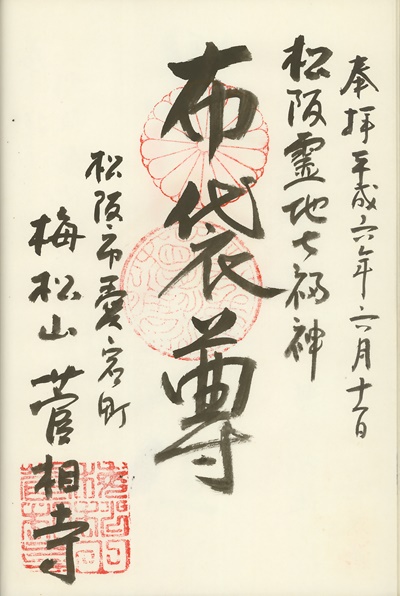 奉拝 平成六年六月十日
松阪霊地七福神
布袋尊
松阪市愛宕町
梅松山 菅相寺